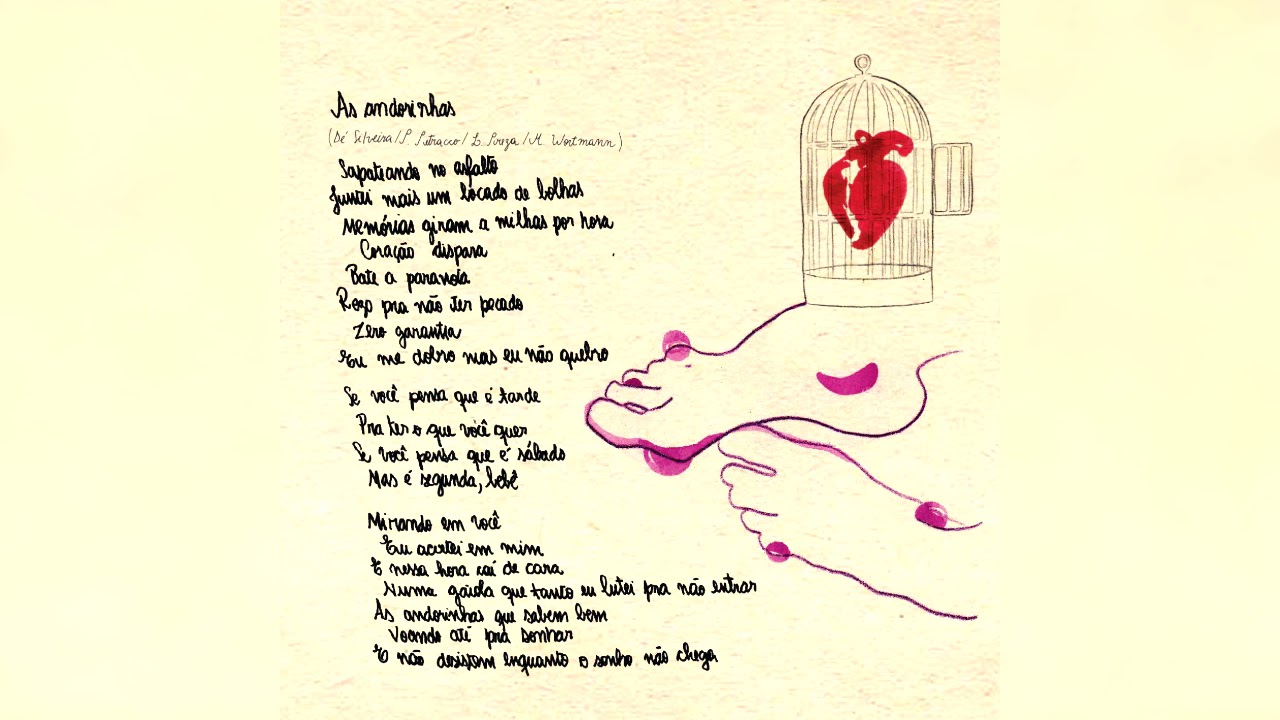 As andorinhas
(Dé Silveira/P. Petracco/L. Preza/M. Wortmann)
Sapateando no asfalto
Juntei mais um bocado de bolhas
Memórias giram a milhas por hora
Coração dispara
Bate a paranoia
Rezo pra não ter pecado
Zero garantia
Eu me dobro mas eu não quebro
Se você pensa que é tarde
Pra ter o que você quer
Se você pensa que é sábado
Mas é segunda, bebê
Mirando em você
Eu acertei em mim
E nessa hora caí de cara
Numa gaiola que tanto eu lutei pra não entrar
As andorinhas que sabem bem
Voando até pra sonhar
E não desistem enquanto o sonho não chega